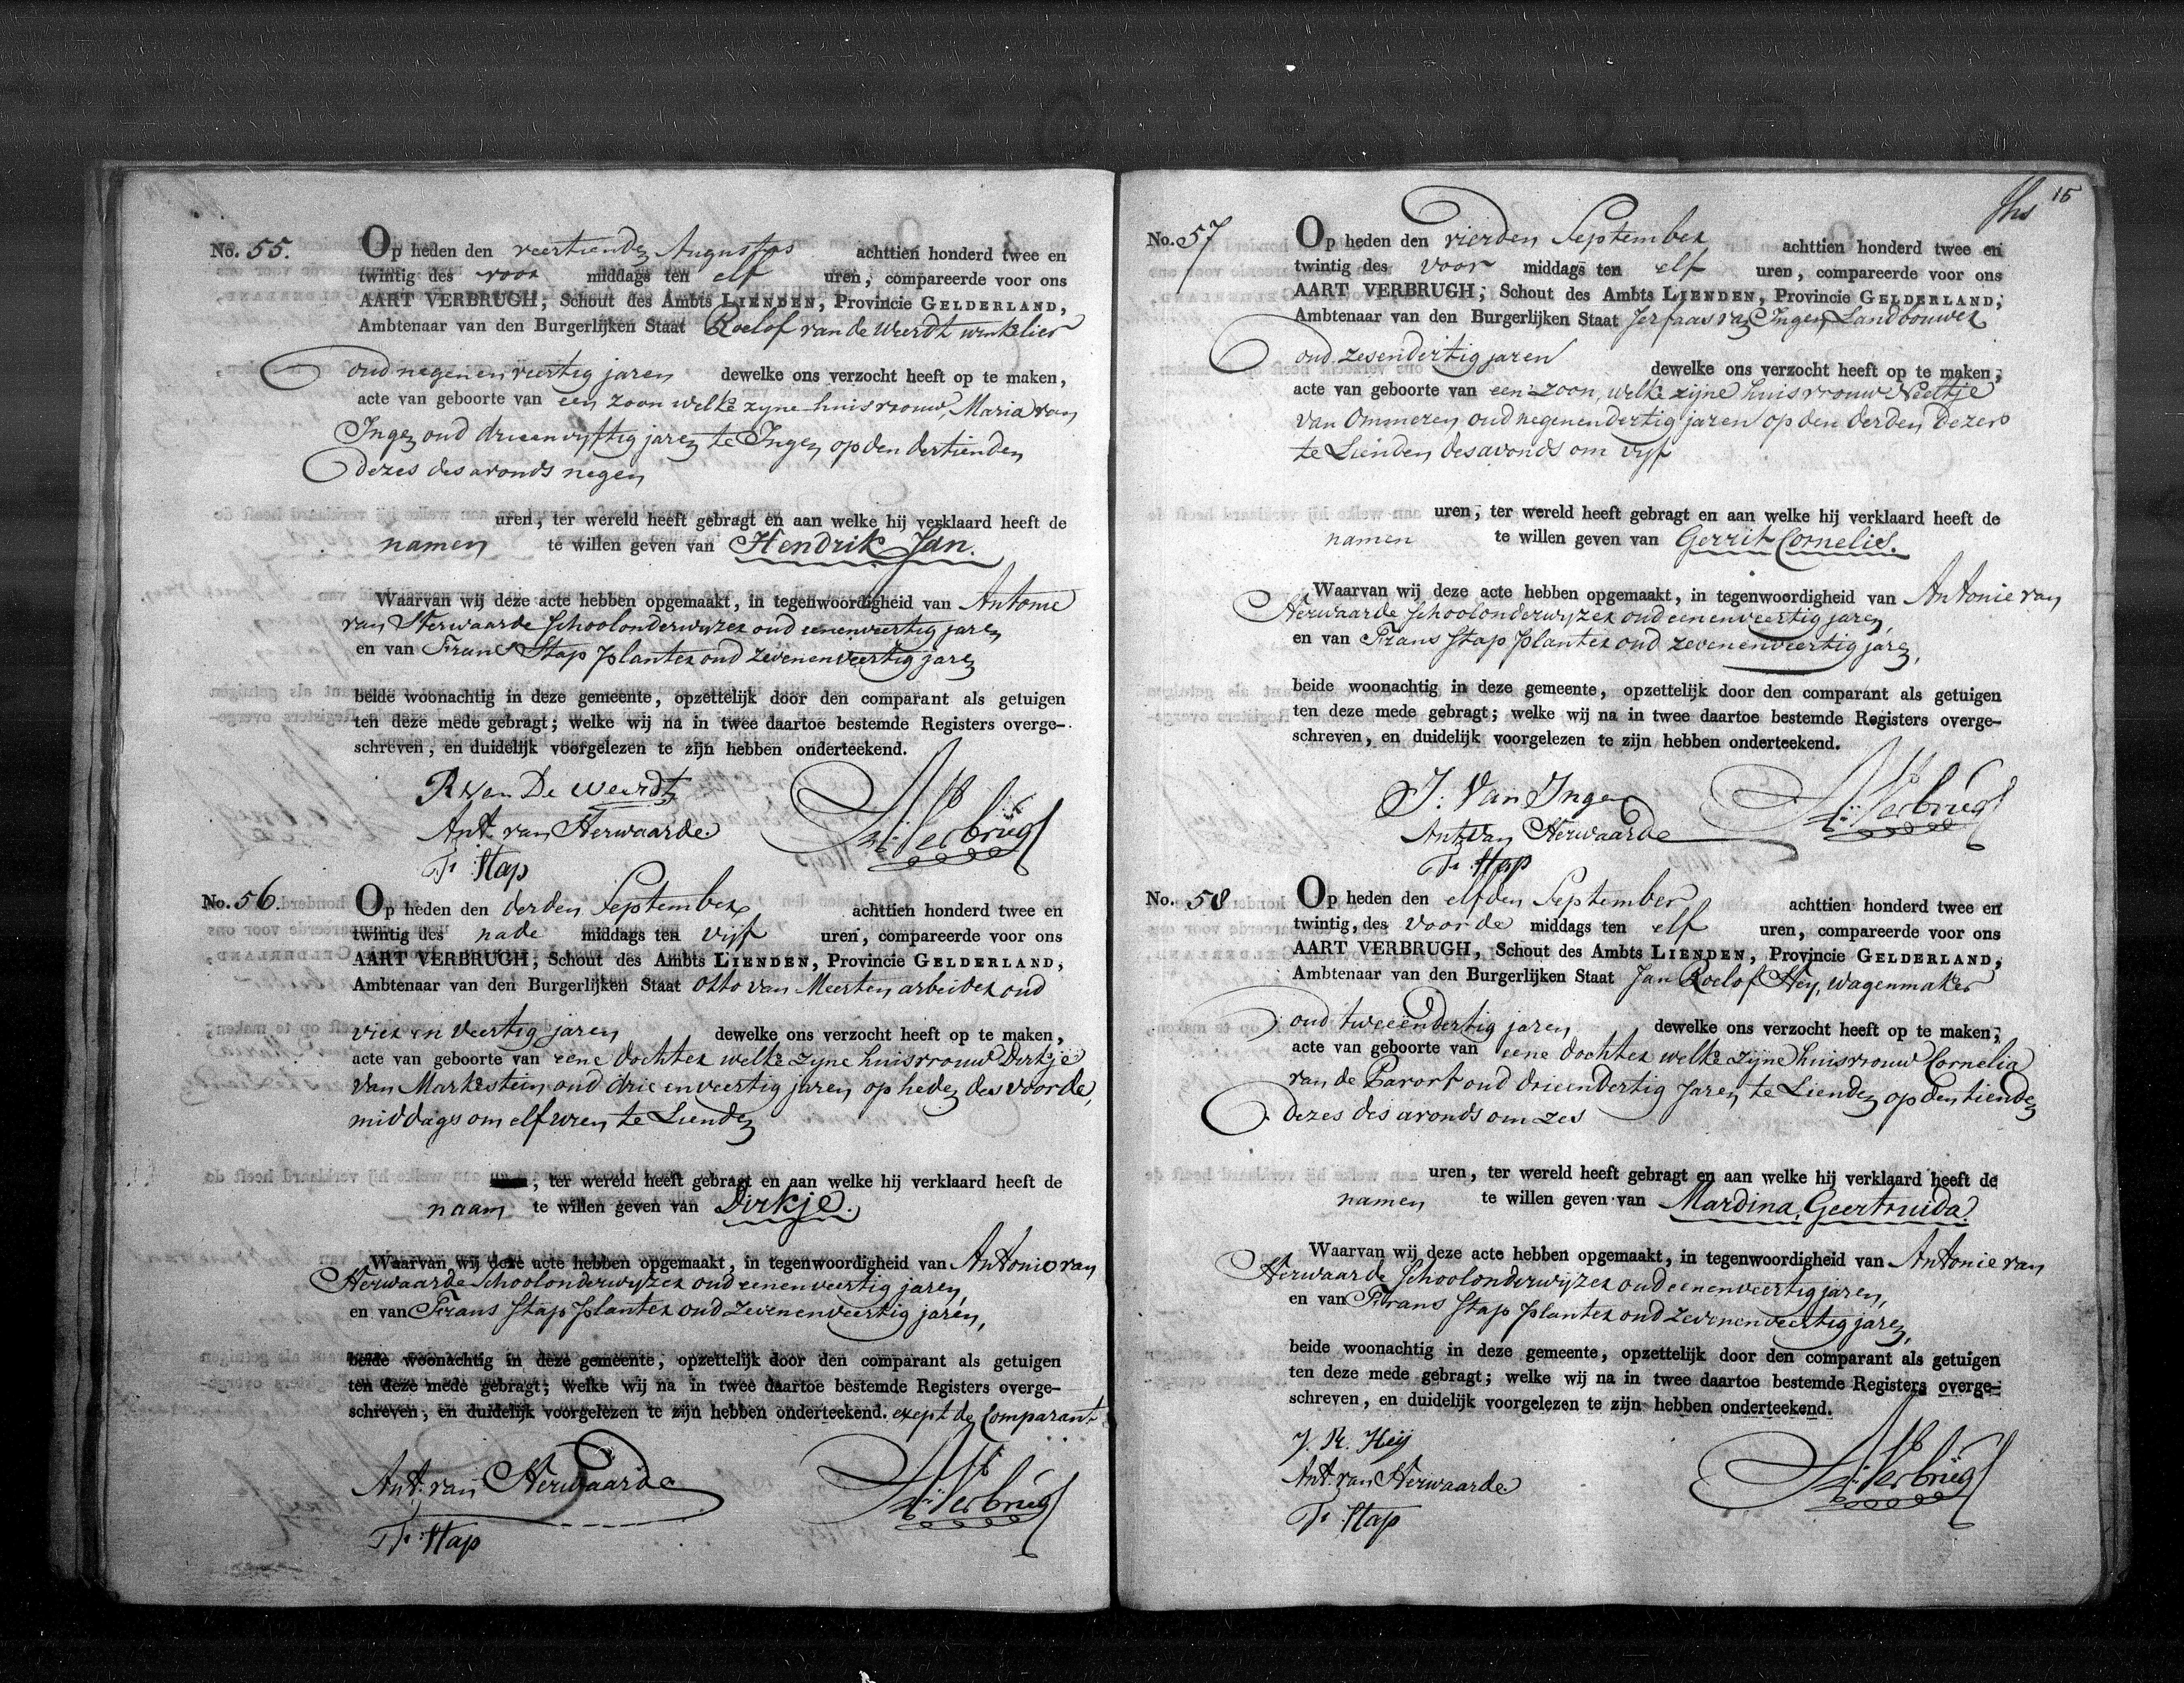 No. 55.
Op heden den veertienden Augustus achttien honderd twee en
twintig des voor middags ten elf uren, compareerde voor ons
AART VERBRUGH, Schout des Ambts LIENDEN, Provincie GELDERLAND,
Ambtenaar van den Burgerlijken Staat Roelof van de Weerdt winkelier
oud negenenveertig jaren dewelke ons verzocht heeft op te maken,
acte van geboorte van een zoon welke zyne huisvrouw, Maria van
Ingen oud drieenvyftig jaren te Ingen op den dertienden
dezes des avonds negen
uren, ter wereld heeft gebragt en aan welke hij verklaard heeft de
namen te willen geven van Hendrik Jan.
Waarvan wij deze acte hebben opgemaakt, in tegenwoordigheid van Antonie
van Herwaarde Schoolonderwyzer oud eenenveertig jaren
en van Frans Stap planter oud zevenenveertig jaren
beide woonachtig in deze gemeente, opzettelijk door den comparant als getuigen
ten deze mede gebragt; welke wij na in twee daartoe bestemde Registers overge-
schreven, en duidelijk voorgelezen te zijn hebben onderteekend.
R van De Weerdt
Ant. van Herwaarde
Fr: Stap
A: Verbrugh
No. 56.
Op heden den derden September achttien honderd twee en
twintig des nade middags ten vijf uren, compareerde voor ons
AART VERBRUGH, Schout des Ambts LIENDEN, Provincie GELDERLAND,
Ambtenaar van den Burgerlijken Staat Otto van Meerten arbeider oud
vier en veertig jaren dewelke ons verzocht heeft op te maken,
acte van geboorte van eene dochter welke zyne huisvrouw Dirkje
van Markestein oud drie enveertig jaren op heden des voorde
middags om elf uren te Lienden
, ter wereld heeft gebragt en aan welke hij verklaard heeft de
naam te willen geven van Dirkje.
Waarvan wij deze acte hebben opgemaakt, in tegenwoordigheid van Antonie van
Herwaarde Schoolonderwyzer oud eenenveertig jaren,
en van Frans Stap planter oud zevenenveertig jaren,
beide woonachtig in deze gemeente, opzettelijk door den comparant als getuigen
ten deze mede gebragt; welke wij na in twee daartoe bestemde Registers overge-
schreven, en duidelijk voorgelezen te zijn hebben onderteekend. exept de Comparant
Ant. van Herwaarde
Fr: Stap
A: Verbrugh
15
No. 57
Op heden den vierden September achttien honderd twee en
twintig des voor middags ten elf uren, compareerde voor ons
AART VERBRUGH, Schout des Ambts LIENDEN, Provincie GELDERLAND,
Ambtenaar van den Burgerlijken Staat Jerfaas van Ingen Landbouwer
oud zesendertig jaren dewelke ons verzocht heeft op te maken,
acte van geboorte van een zoon, welke zijne huisvrouw Neeltje
van Ommeren oud negenendertig jaren op den derden dezes
te Lienden des avonds om vyf
uren, ter wereld heeft gebragt en aan welke hij verklaard heeft de
namen te willen geven van Gerrit Cornelis.
Waarvan wij deze acte hebben opgemaakt, in tegenwoordigheid van Antonie van
Herwaarde Schoolonderwyzer oud eenenveertig jaren,
en van Frans Stap planter oud zevenenveertig jaren,
beide woonachtig in deze gemeente, opzettelijk door den comparant als getuigen
ten deze mede gebragt; welke wij na in twee daartoe bestemde Registers overge-
schreven, en duidelijk voorgelezen te zijn hebben onderteekend.
J: Van Ingen
Ant van Herwaarde
Fr: Stap
A: Verbrugh
No. 58
Op heden den elfden September achttien honderd twee en
twintig, des voorde middags ten elf uren, compareerde voor ons
AART VERBRUGH, Schout des Ambts LIENDEN, Provincie GELDERLAND,
Ambtenaar van den Burgerlijken Staat Jan Roelof Hey, wagenmaker
oud tweeendertig jaren, dewelke ons verzocht heeft op te maken,
acte van geboorte van eene dochter welke zijne huisvrouw Cornelia
van de Pavort oud drieendertig Jaren te Lienden op den tienden
dezes des avonds om zes
uren, ter wereld heeft gebragt en aan welke hij verklaard heeft de
namen te willen geven van Mardina, Geertruida.
Waarvan wij deze acte hebben opgemaakt, in tegenwoordigheid van Antonie van
Herwaarde Schoolonderwijzer oud eenenveertig jaren,
en van Frans Stap planter oud zevenenveertig jaren,
beide woonachtig in deze gemeente, opzettelijk door den comparant als getuigen
ten deze mede gebragt; welke wij na in twee daartoe bestemde Registers overge-
schreven, en duidelijk voorgelezen te zijn hebben onderteekend.
J. R. Heij
Ant. van Herwaarde
Fr: Stap
A: Verbrugh